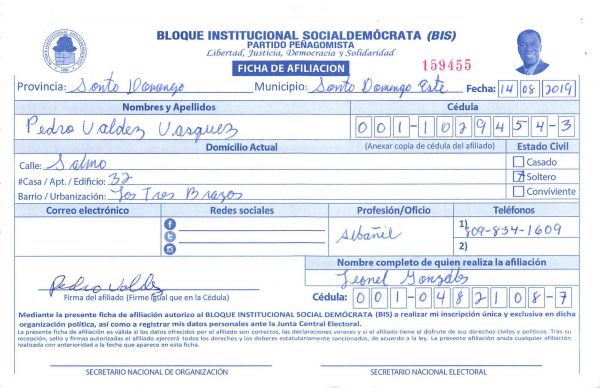 BLOQUE INSTITUCIONAL SOCIALDEMÓCRATA (BIS)
PARTIDO PEÑAGOMISTA
Libertad, Justicia, Democracia y Solidaridad
FICHA DE AFILIACION
159455
Provincia: Santo Domingo Municipio: Santo Domingo Este Fecha: 14 08 2019
Nombres y Apellidos Cédula
Pedro Valdez Vasquez 001-1029454-3
Domicilio Actual (Anexar copia de cédula del afiliado) Estado Civil
Calle: Salmo Casado
#Casa / Apt. / Edificio: 32 Soltero
Barrio / Urbanización: Los Tres Brazos Conviviente
Correo electrónico Redes sociales Profesión/Oficio Teléfonos
Albañil 1) 809-834-1609
2)
Nombre completo de quien realiza la afiliación
Pedro Valdez Leonel Gonzáles
Firma del afiliado (Firme igual que en la Cédula) Cédula: 001-0482108-7
Mediante la presente ficha de afiliación autorizo al BLOQUE INSTITUCIONAL SOCIAL DEMÓCRATA (BIS) a realizar mi inscripción única y exclusiva en dicha
organización política, así como a registrar mis datos personales ante la Junta Central Electoral.
La presente ficha de afiliación es válida si los datos ofrecidos por el afiliado son correctos, las declaraciones veraces y si el afiliado tiene el disfrute de sus derechos civiles y políticos. Tras su
recepción, sello y firmas autorizadas el afiliado ejercerá todos los derechos y los deberes estatutariamente sancionados, de acuerdo a la ley. La presente afiliación anula cualquier afiliación
realizada con anterioridad a la fecha que aparece en esta ficha.
SECRETARIO NACIONAL DE ORGANIZACIÓN SECRETARIO NACIONAL ELECTORAL